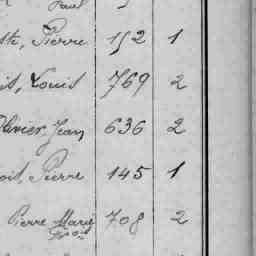 Paul
Pierre 152 1
Louis 769 2
Olivier, Jean 636 2
Pierre 145 1
Pierre Marie 708 2